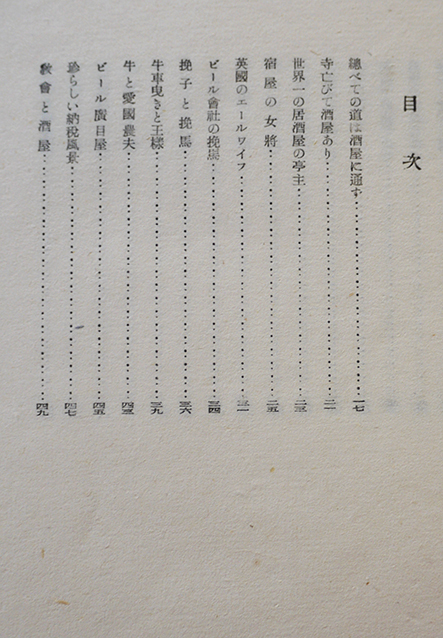 目次
總べての道は酒屋に通ず……一七
寺亡びて酒屋あり……二一
世界一の居酒屋の亭主……二三
宿屋の女將……二五
英國のエールワイフ……三一
ビール會社の挽馬……三四
挽子と挽馬……三六
牛車曳きと王樣……三九
牛と愛國農夫……四三
ビール廣目屋……四五
珍らしい納税風景……四七
敎會と酒屋……四九